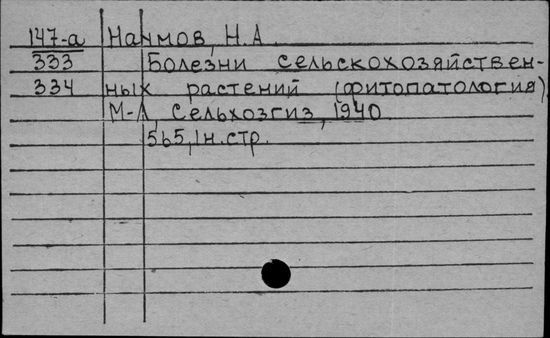 147-а Наумов, Н.А.
333 Болезни сельскохозяйствен-
334 ных растений (фитопатология)
М-Л, Сельхозгиз, 1940
565, 1н.стр.